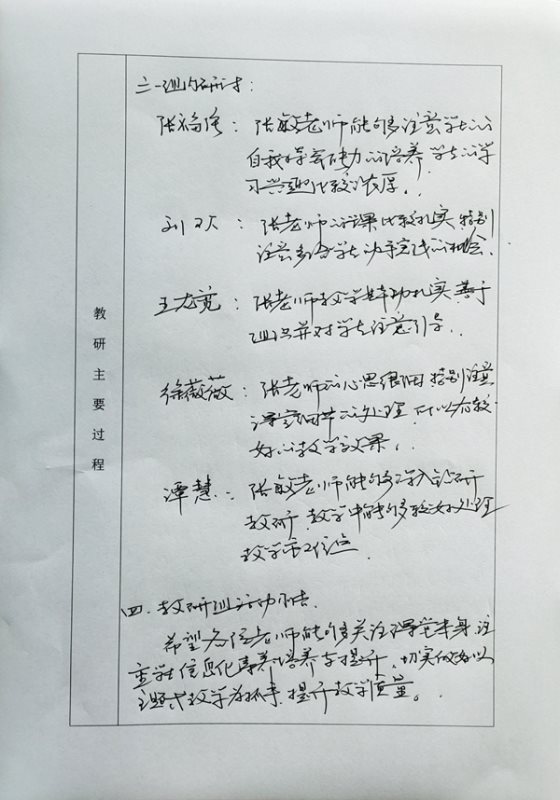 教研主要过程
三、组内研讨：
张福俊：张敏老师能够注意学生的
自我学习能力的培养，学生的学
习兴趣比较浓厚。
刘　：张老师的课比较扎实，特别
注意多给学生动手实践的机会。
王龙宽：张老师教学基本功扎实，善于
组织并对学生注意引导。
徐薇薇：张老师的心思很细，特别注意
课堂细节的处理，所以有较
好的教学效果。
谭慧：张敏老师能够深入钻研
教研，教学中能够较好处理
教学
四、教研组活动小结
希望各位老师能够多关注课堂本身，注
重学生信息化素养的培养与提升，切实做好以
现代教学为抓手，提升教学质量。